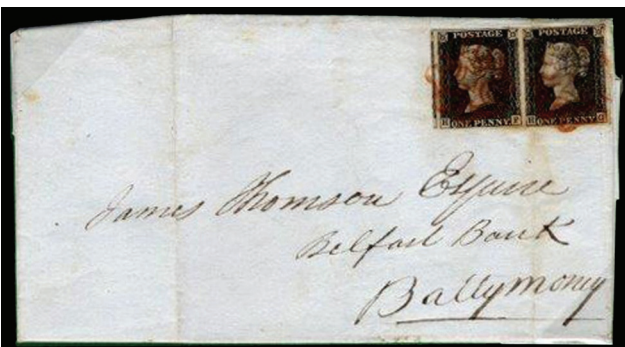 POSTAGE POSTAGE
ONE PENNY ONE PENNY
James Thomson Esquire
Belfast Bank
Ballymoney